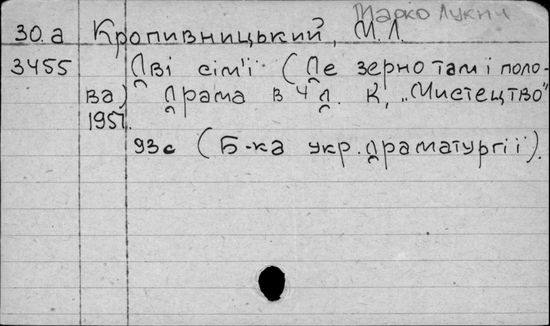 Марко Лукич
30.а Кропивницький, М.Л.
3455 Дві сім'ї (Де зерно там і поло-
ва) Драма в 4 д. К, „Мистецтво"
1951.
93с (Б-ка укр. драматургії).